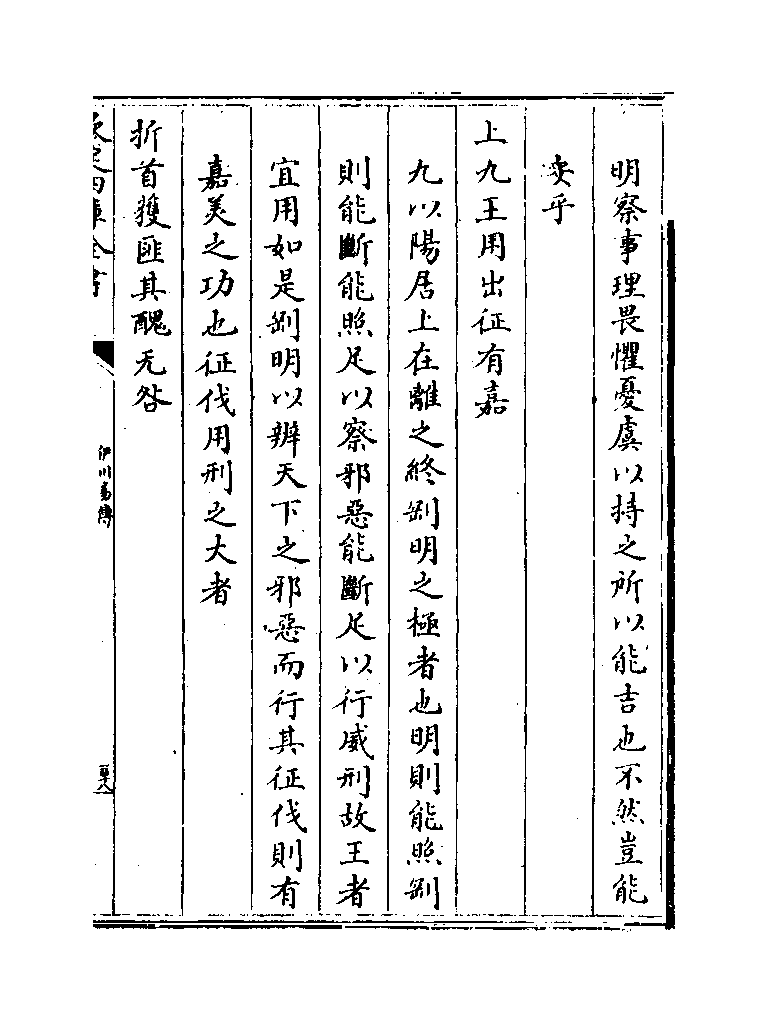 明察事理畏懼憂虞以持之所以能吉也不然豈能
安乎
上九王用出征有嘉
九以陽居上在離之終剛明之極者也明則能照剛
則能斷能照足以察邪惡能斷足以行威刑故王者
宜用如是剛明以辨天下之邪惡而行其征伐則有
嘉美之功也征伐用刑之大者
折首獲匪其醜无咎
欽定四庫全書
伊川易傳